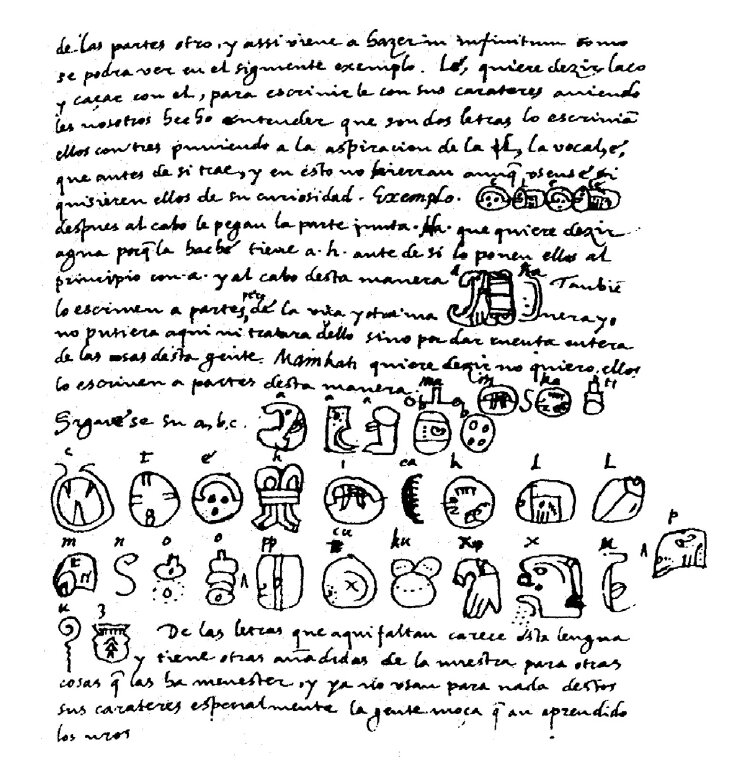 de las partes otro, y assi viene a hazer in infinitum como
se podra ver en el siguiente exemplo. Lé, quiere dezir laço
y caçar con el, para escrivirle con sus carateres aviendo
les nosotros hecho entender que son dos letras lo escrivian
ellos con tres puniendo a la aspiracion de la l, la vocal, é,
que antes de si trae, y en esto no hierran aunq usense si
quisieren ellos de su curiosidad. Exemplo. e l e le
despues al cabo le pegan la parte junta. Ha. que quiere dezir
agua porq la haché tiene a. h. ante de si lo ponen ellos al
principio con a. y al cabo desta manera a ha Tambiē
lo escriven a partes, pero de la una y otra ma nera yo
no pusiera aqui ni tratara dello sino por dar cuenta entera
de las cosas desta gente. Mainkati quiere dezir no quiero, ellos
lo escriven a partes desta manera. ma i n ka ti
Siguese su a, b, c. a a a b b
c t é h i ca k l l
m n o o pp cu ku x x u p
u z De las letras que aqui faltan carece esta lengua
y tiene otras añadidas de la nuestra para otras
cosas q̄ las ha menester, y ya no usan para nada destos
sus carateres especialmente la gente moça q̄ an aprendido
los nros